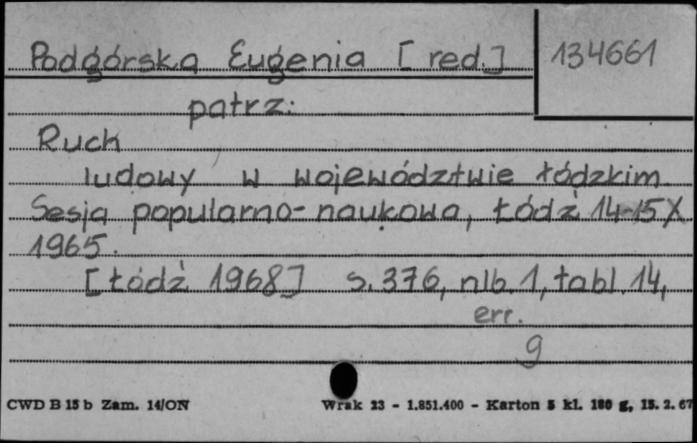 Podgórska Eugenia [red.] 134661
patrz:
Ruch
ludowy w województwie łódzkim
Sesja popularno-naukowa, Łódź 14-15 X
1965.
[Łódź 1968] s. 376, nlb. 1, tabl. 14,
err.
g
CWD B 15 b Zam. 14/ON Wrak 23 - 1.851.400 - Karton 5 kl. 180 g, 15. 2. 67